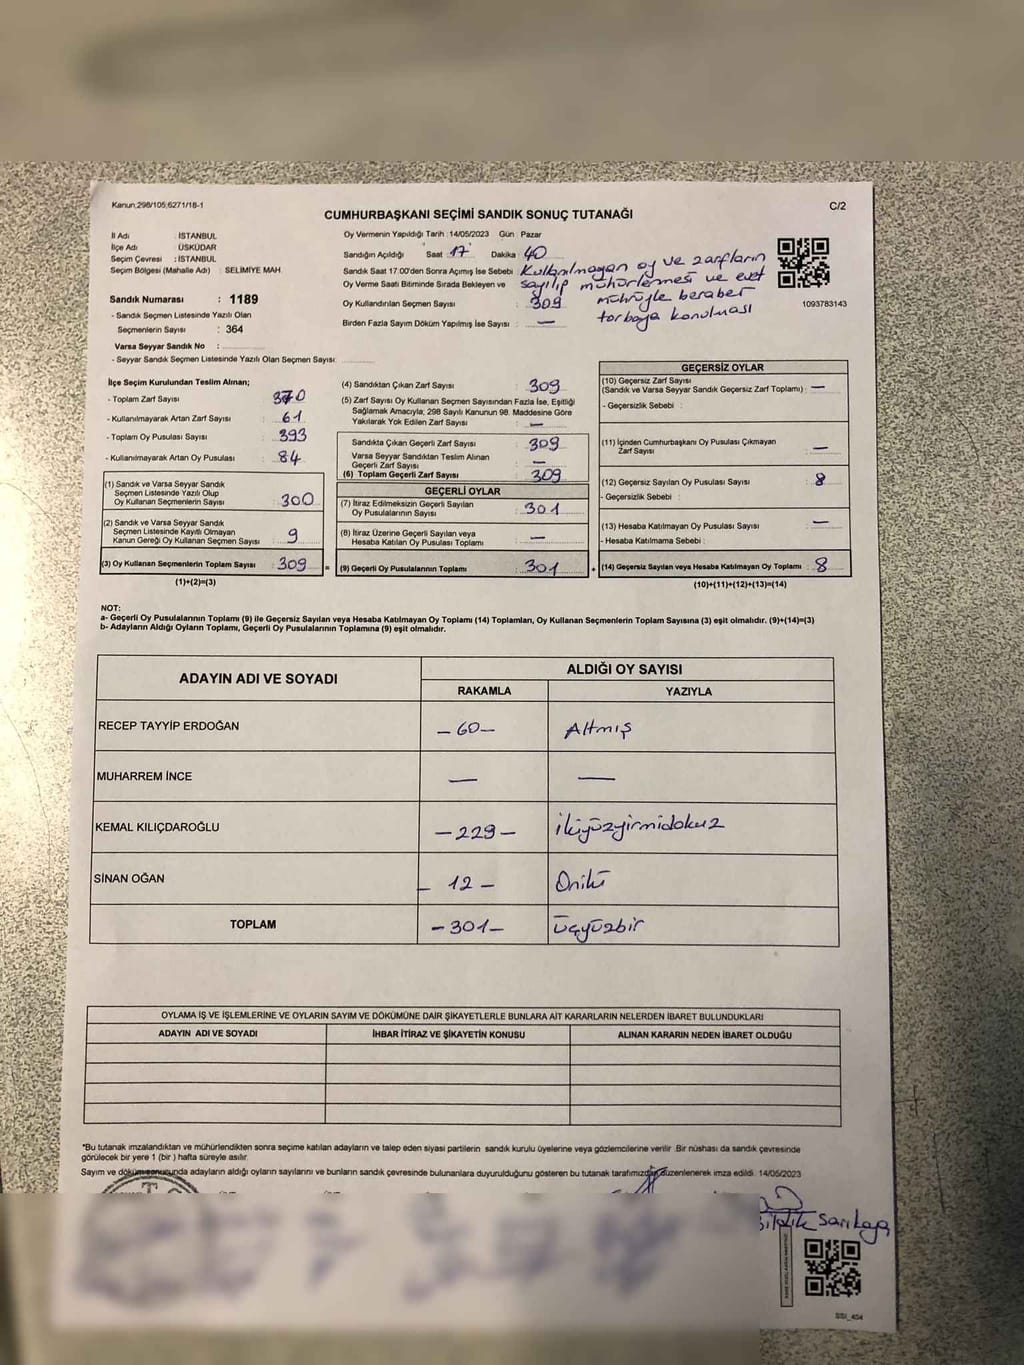 Kanun;298/105;6271/18-1
C/2
CUMHURBAŞKANI SEÇİMİ SANDIK SONUÇ TUTANAĞI
İl Adı : İSTANBUL
İlçe Adı : ÜSKÜDAR
Seçim Çevresi : İSTANBUL
Seçim Bölgesi (Mahalle Adı) : SELİMİYE MAH.
Sandık Numarası : 1189
- Sandık Seçmen Listesinde Yazılı Olan
Seçmenlerin Sayısı : 364
Varsa Seyyar Sandık No :
- Seyyar Sandık Seçmen Listesinde Yazılı Olan Seçmen Sayısı:
Oy Vermenin Yapıldığı Tarih :14/05/2023 Gün : Pazar
Sandığın Açıldığı Saat 17 Dakika 40
Sandık Saat 17.00'den Sonra Açımış İse Sebebi Kullanılmayan oy ve zarfların
sayılıp mühürlenmesi ve evet
mührüyle beraber
torbaya konulması
Oy Verme Saati Bitiminde Sırada Bekleyen ve
Oy Kullandırılan Seçmen Sayısı : 309
Birden Fazla Sayım Döküm Yapılmış İse Sayısı : —
1093783143
İlçe Seçim Kurulundan Teslim Alınan;
- Toplam Zarf Sayısı : 370
- Kullanılmayarak Artan Zarf Sayısı : 61
- Toplam Oy Pusulası Sayısı : 393
- Kullanılmayarak Artan Oy Pusulası : 84
(1) Sandık ve Varsa Seyyar Sandık
Seçmen Listesinde Yazılı Olup
Oy Kullanan Seçmenlerin Sayısı : 300
(2) Sandık ve Varsa Seyyar Sandık
Seçmen Listesinde Kayıtlı Olmayan
Kanun Gereği Oy Kullanan Seçmen Sayısı : 9
(3) Oy Kullanan Seçmenlerin Toplam Sayısı : 309
(1)+(2)=(3)
(4) Sandıktan Çıkan Zarf Sayısı : 309
(5) Zarf Sayısı Oy Kullanan Seçmen Sayısından Fazla İse, Eşitliği
Sağlamak Amacıyla; 298 Sayılı Kanunun 98. Maddesine Göre
Yakılarak Yok Edilen Zarf Sayısı : —
Sandıkta Çıkan Geçerli Zarf Sayısı : 309
Varsa Seyyar Sandıktan Teslim Alınan
Geçerli Zarf Sayısı : —
(6) Toplam Geçerli Zarf Sayısı : 309
GEÇERLİ OYLAR
(7) İtiraz Edilmeksizin Geçerli Sayılan
Oy Pusulalarının Sayısı : 301
(8) İtiraz Üzerine Geçerli Sayılan veya
Hesaba Katılan Oy Pusulası Toplamı : —
= (9) Geçerli Oy Pusulalarının Toplamı : 301 +
GEÇERSİZ OYLAR
(10) Geçersiz Zarf Sayısı
(Sandık ve Varsa Seyyar Sandık Geçersiz Zarf Toplamı) : —
- Geçersizlik Sebebi :
(11) İçinden Cumhurbaşkanı Oy Pusulası Çıkmayan
Zarf Sayısı : —
(12) Geçersiz Sayılan Oy Pusulası Sayısı : 8
- Geçersizlik Sebebi :
(13) Hesaba Katılmayan Oy Pusulası Sayısı : —
- Hesaba Katılmama Sebebi :
(14) Geçersiz Sayılan veya Hesaba Katılmayan Oy Toplamı : 8
(10)+(11)+(12)+(13)=(14)
NOT:
a- Geçerli Oy Pusulalarının Toplamı (9) ile Geçersiz Sayılan veya Hesaba Katılmayan Oy Toplamı (14) Toplamları, Oy Kullanan Seçmenlerin Toplam Sayısına (3) eşit olmalıdır. (9)+(14)=(3)
b- Adayların Aldığı Oyların Toplamı, Geçerli Oy Pusulalarının Toplamına (9) eşit olmalıdır.
ADAYIN ADI VE SOYADI ALDIĞI OY SAYISI
RAKAMLA YAZIYLA
RECEP TAYYİP ERDOĞAN —60— Altmış
MUHARREM İNCE — —
KEMAL KILIÇDAROĞLU —229— ikiyüzyirmidokuz
SİNAN OĞAN — 12 — Oniki
TOPLAM —301— Üçyüzbir
OYLAMA İŞ VE İŞLEMLERİNE VE OYLARIN SAYIM VE DÖKÜMÜNE DAİR ŞİKAYETLERLE BUNLARA AİT KARARLARIN NELERDEN İBARET BULUNDUKLARI
ADAYIN ADI VE SOYADI İHBAR İTİRAZ VE ŞİKAYETİN KONUSU ALINAN KARARIN NEDEN İBARET OLDUĞU
*Bu tutanak imzalandıktan ve mühürlendikten sonra seçime katılan adayların ve talep eden siyasi partilerin sandık kurulu üyelerine veya gözlemcilerine verilir. Bir nüshası da sandık çevresinde
görülecek bir yere 1 (bir ) hafta süreyle asılır.
Sayım ve döküm sonucunda adayların aldığı oyların sayılarını ve bunların sandık çevresinde bulunanlara duyurulduğunu gösteren bu tutanak tarafımızdan düzenlenerek imza edildi. 14/05/2023
sarıkaya
SSI_404